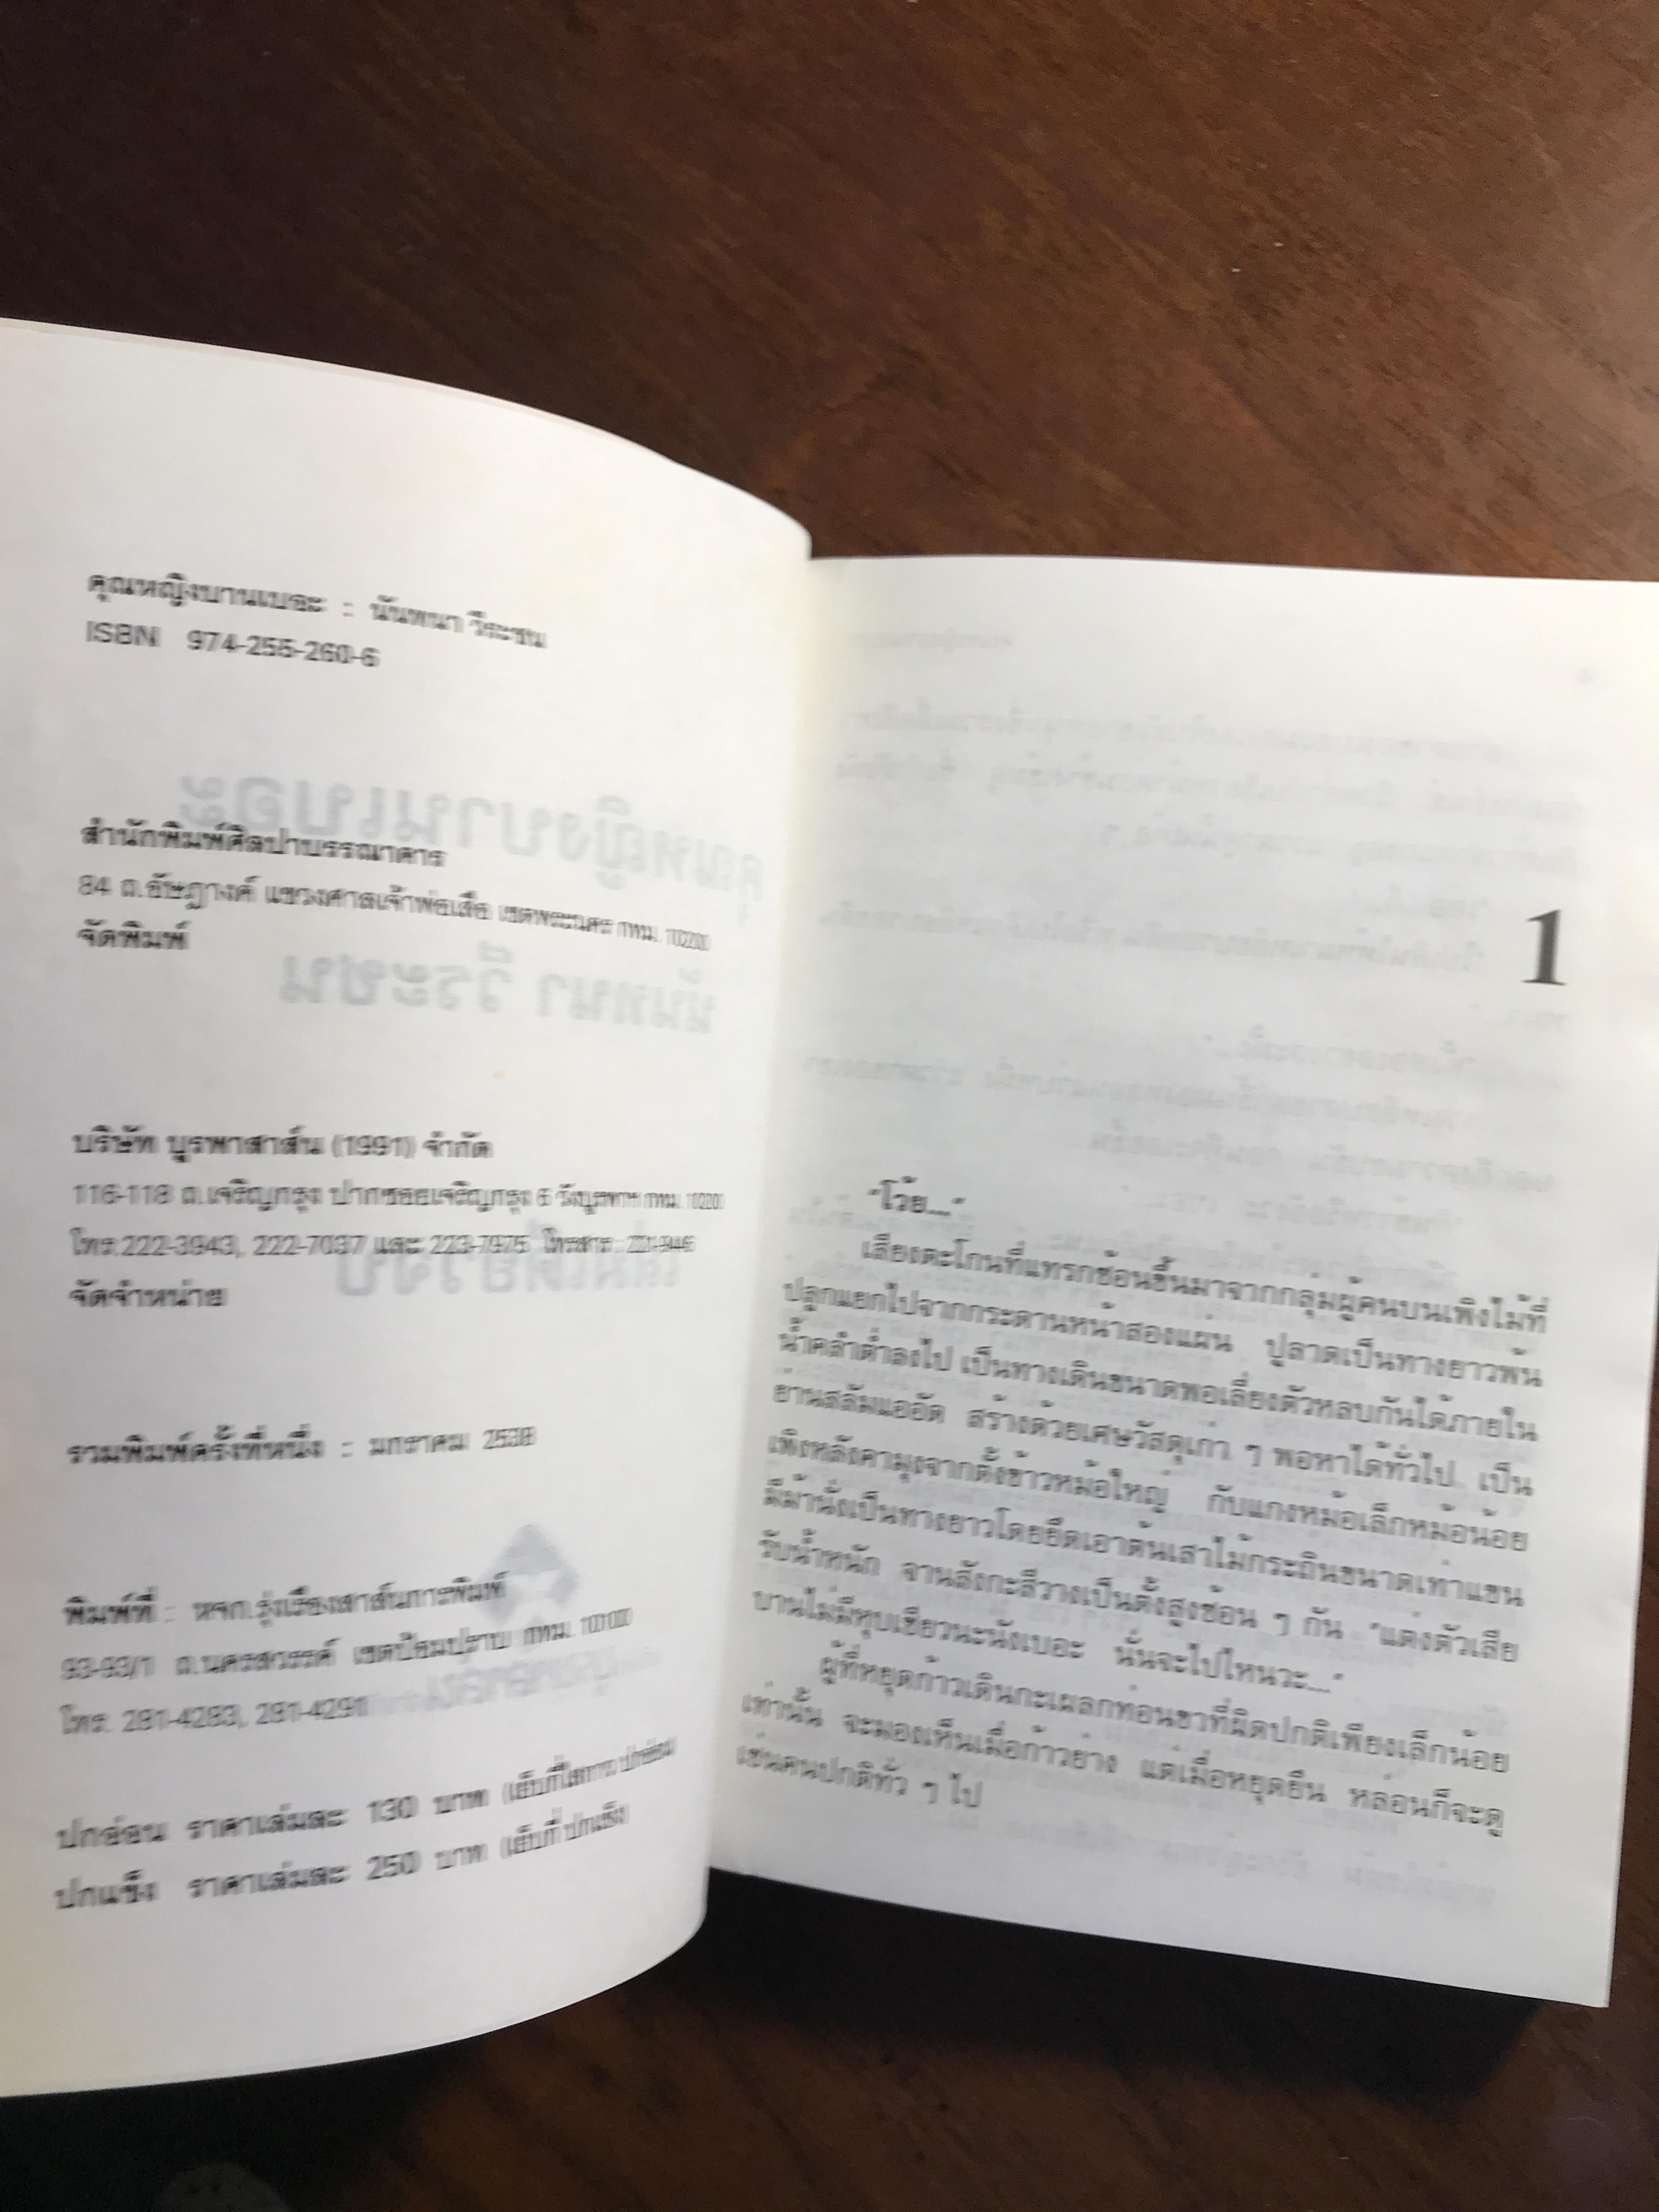 คุณหญิงบานเบอะ : นันทนา วีระชน
ISBN 974-255-260-6
สำนักพิมพ์ศิลปาบรรณาคาร
84 ถ.อัษฎางค์ แขวงศาลเจ้าพ่อเสือ เขตพระนคร กทม. 10200
จัดพิมพ์
บริษัท บูรพาสาส์น (1991) จำกัด
116-118 ถ.เจริญกรุง ปากซอยเจริญกรุง 6 วังบูรพาฯ กทม. 10200
โทร.222-3943, 222-7037 และ 223-7975 โทรสาร :
จัดจำหน่าย
รวมพิมพ์ครั้งที่หนึ่ง : มกราคม 2538
พิมพ์ที่ : หจก.รุ่งเรืองสาส์นการพิมพ์
93-93/1 ถ.นครสวรรค์ เขตป้อมปราบ กทม. 10100
โทร. 281-4283, 281-4291
ปกอ่อน ราคาเล่มละ 130 บาท
ปกแข็ง ราคาเล่มละ 250 บาท
1
"โว้ย..."
เสียงตะโกนที่แทรกซ้อนขึ้นมาจากกลุ่มผู้คนบนเพิงไม้ที่
ปลูกแยกไปจากกระดานหน้าสองแผ่น ปูลาดเป็นทางยาวพ้น
น้ำคลำต่ำลงไป เป็นทางเดินขนาดพอเลี่ยงตัวหลบกันได้ภายใน
ย่านสลัมแออัด สร้างด้วยเศษวัสดุเก่า ๆ พอหาได้ทั่วไป เป็น
เพิงหลังคามุงจากตั้งข้าวหม้อใหญ่ กับแกงหม้อเล็กหม้อน้อย
มีม้านั่งเป็นทางยาวโดยยึดเอาต้นเสาไม้กระถินขนาดเท่าแขน
รับน้ำหนัก จานสังกะสีวางเป็นตั้งสูงซ้อน ๆ กัน "แต่งตัวเสีย
บานไม่มีหุบเชียวนะนังเบอะ นั่นจะไปไหนวะ..."
ผู้ที่หยุดก้าวเดินกะเผลกท่อนขาที่ผิดปกติเพียงเล็กน้อย
เท่านั้น จะมองเห็นเมื่อก้าวย่าง แต่เมื่อหยุดยืน หล่อนก็จะดู
เช่นคนปกติทั่ว ๆ ไป